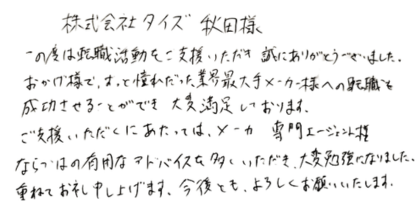 株式会社タイズ 秋田様
この度は転職活動をご支援いただき誠にありがとうございました。
おかげ様で、ずっと憧れだった業界最大手メーカー様への転職を
成功させることができ大変満足しております。
ご支援いただくにあたっては、メーカ 専門エージェント様
ならではの有用なアドバイスを多くいただき、大変勉強になりました。
重ねてお礼申し上げます。今後とも、よろしくお願いいたします。